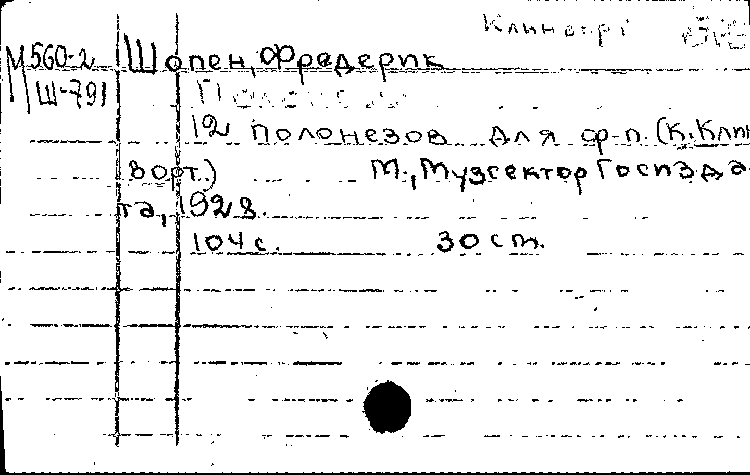 Клинворт
М560-2 Шопен, Фредерик
Ш-791
12 полонезов для ф-п. (К. Клин
ворт.) М., Музсектор Госизда
та, 1928.
104 с. 30 см.